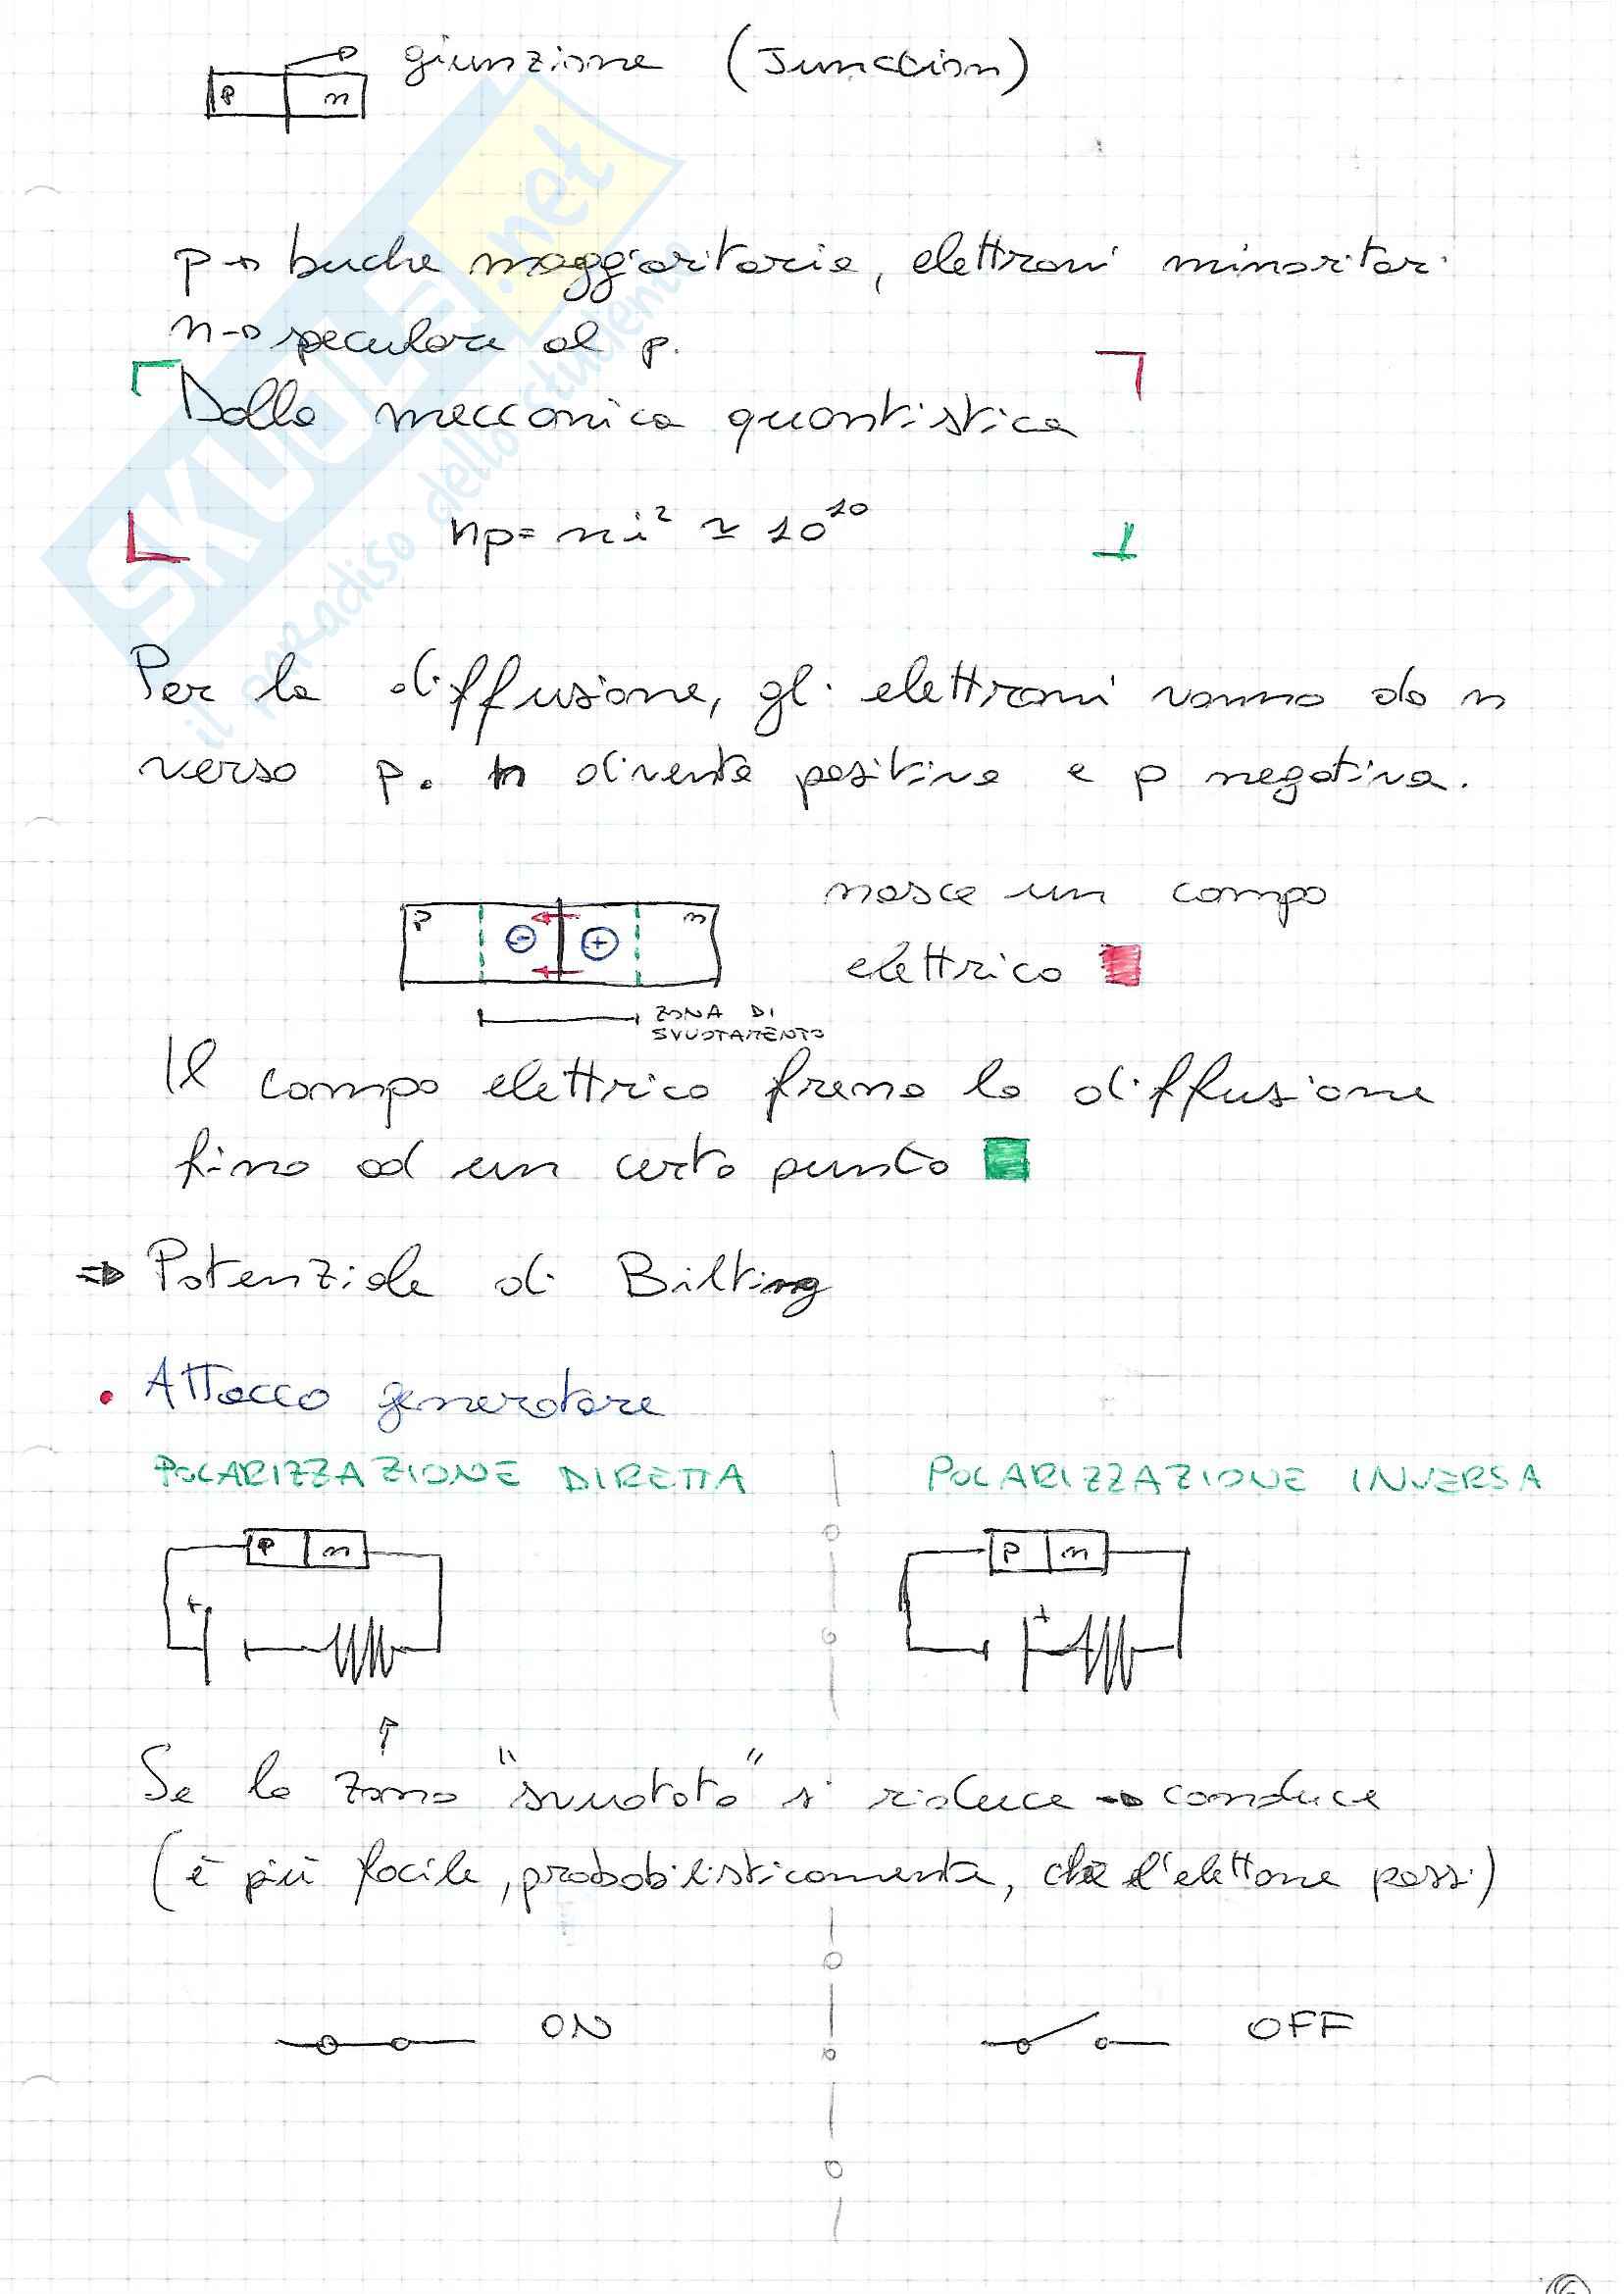 giunzione (Junction)
p n
p → buche maggioritarie, elettroni minoritari
n → speculare al p.
Dalla meccanica quantistica
np = ni² ≃ 10²⁰
Per la diffusione, gli elettroni vanno da n
verso p. n diventa positiva e p negativa.
nasce un campo
p - + n
elettrico
ZONA DI
SVUOTAMENTO
Il campo elettrico frena la diffusione
fino ad un certo punto
⇒ Potenziale di Bilting
• Attacco generatore
POLARIZZAZIONE DIRETTA | POLARIZZAZIONE INVERSA
p n p n
+ +
Se la zona "svuotata" si riduce → conduce
(è più facile, probabilisticamente, che l'elettone passi)
ON OFF
SKUOLA.net
il paradiso dello studente